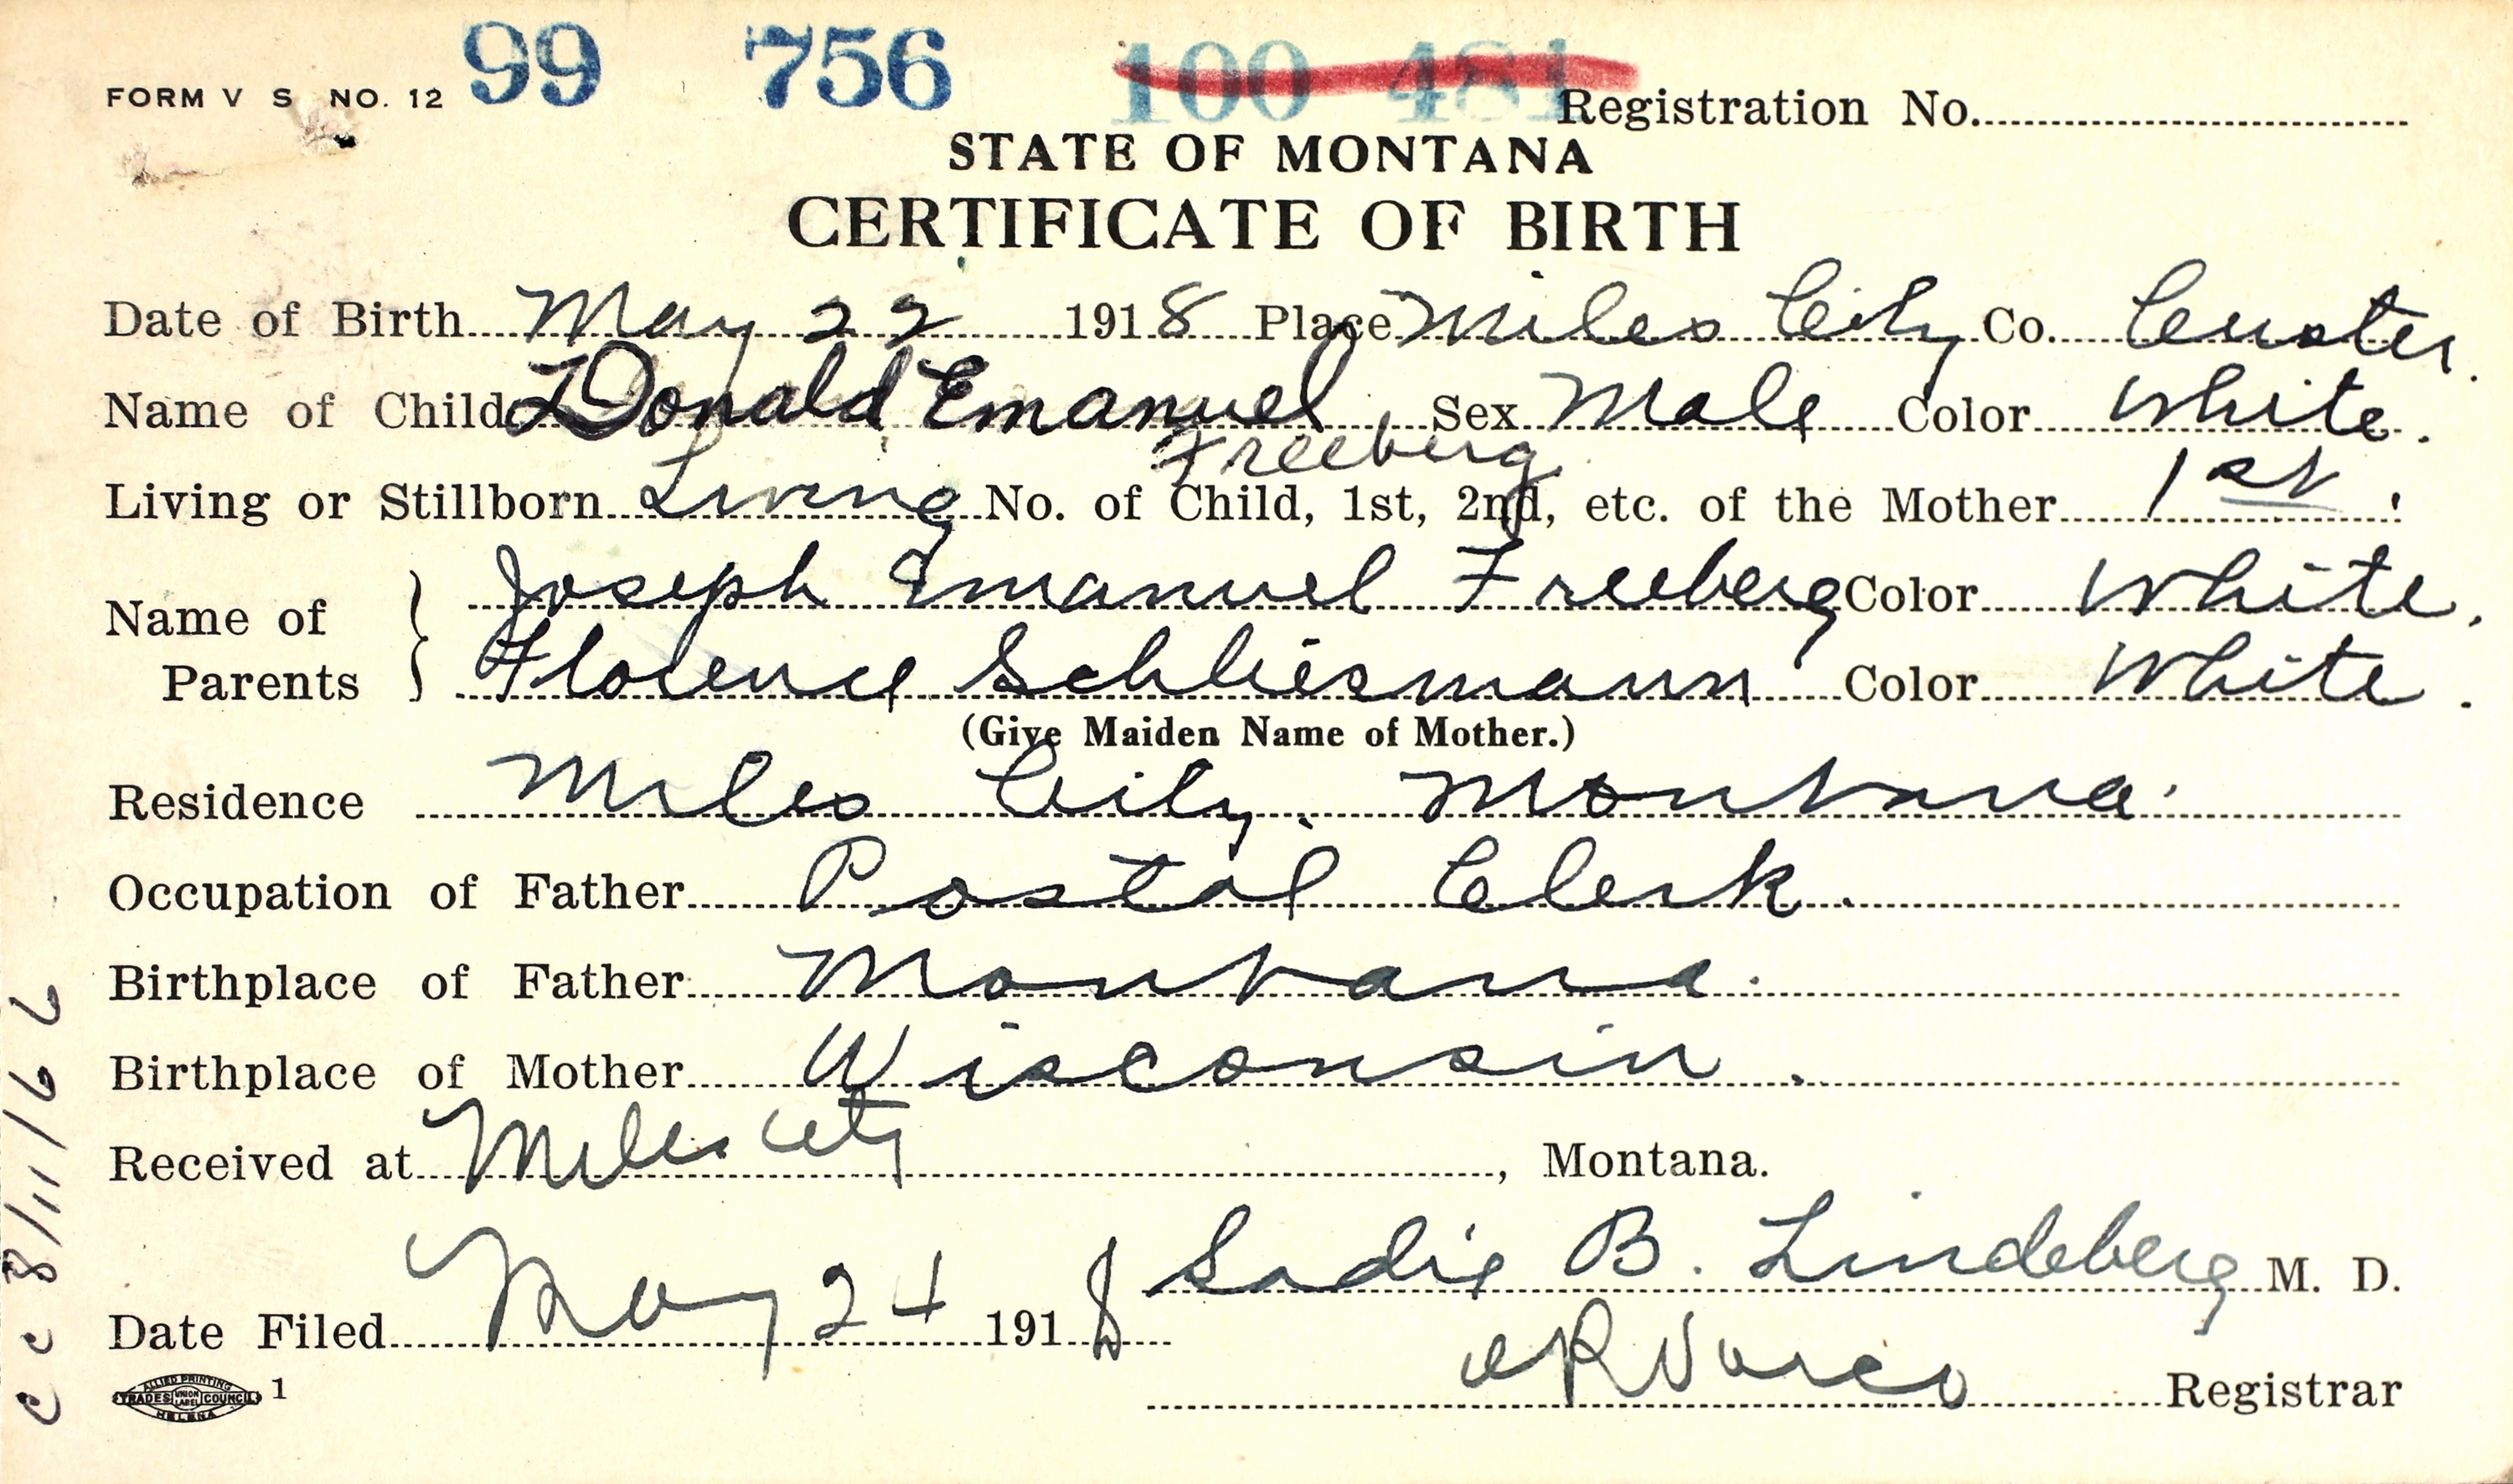 FORM V S NO. 12 99 756 100 481 Registration No.
STATE OF MONTANA
CERTIFICATE OF BIRTH
Date of Birth May 22 1918 Place Miles City Co. Custer.
Name of Child Donald Emanuel Sex Male Color White.
Freeberg
Living or Stillborn Living No. of Child, 1st, 2nd, etc. of the Mother 1st.
Name of Parents } Joseph Emanuel Freeberg Color White.
Florence Schliesmann Color White.
(Give Maiden Name of Mother.)
Residence Miles City, Montana.
Occupation of Father Postal Clerk.
Birthplace of Father Montana.
Birthplace of Mother Wisconsin.
Received at Miles City, Montana.
Sadie B. Lindeberg M. D.
Date Filed May 24 1918
Registrar
ALLIED PRINTING TRADES UNION LABEL COUNCIL HELENA 1
c c 8/11/66